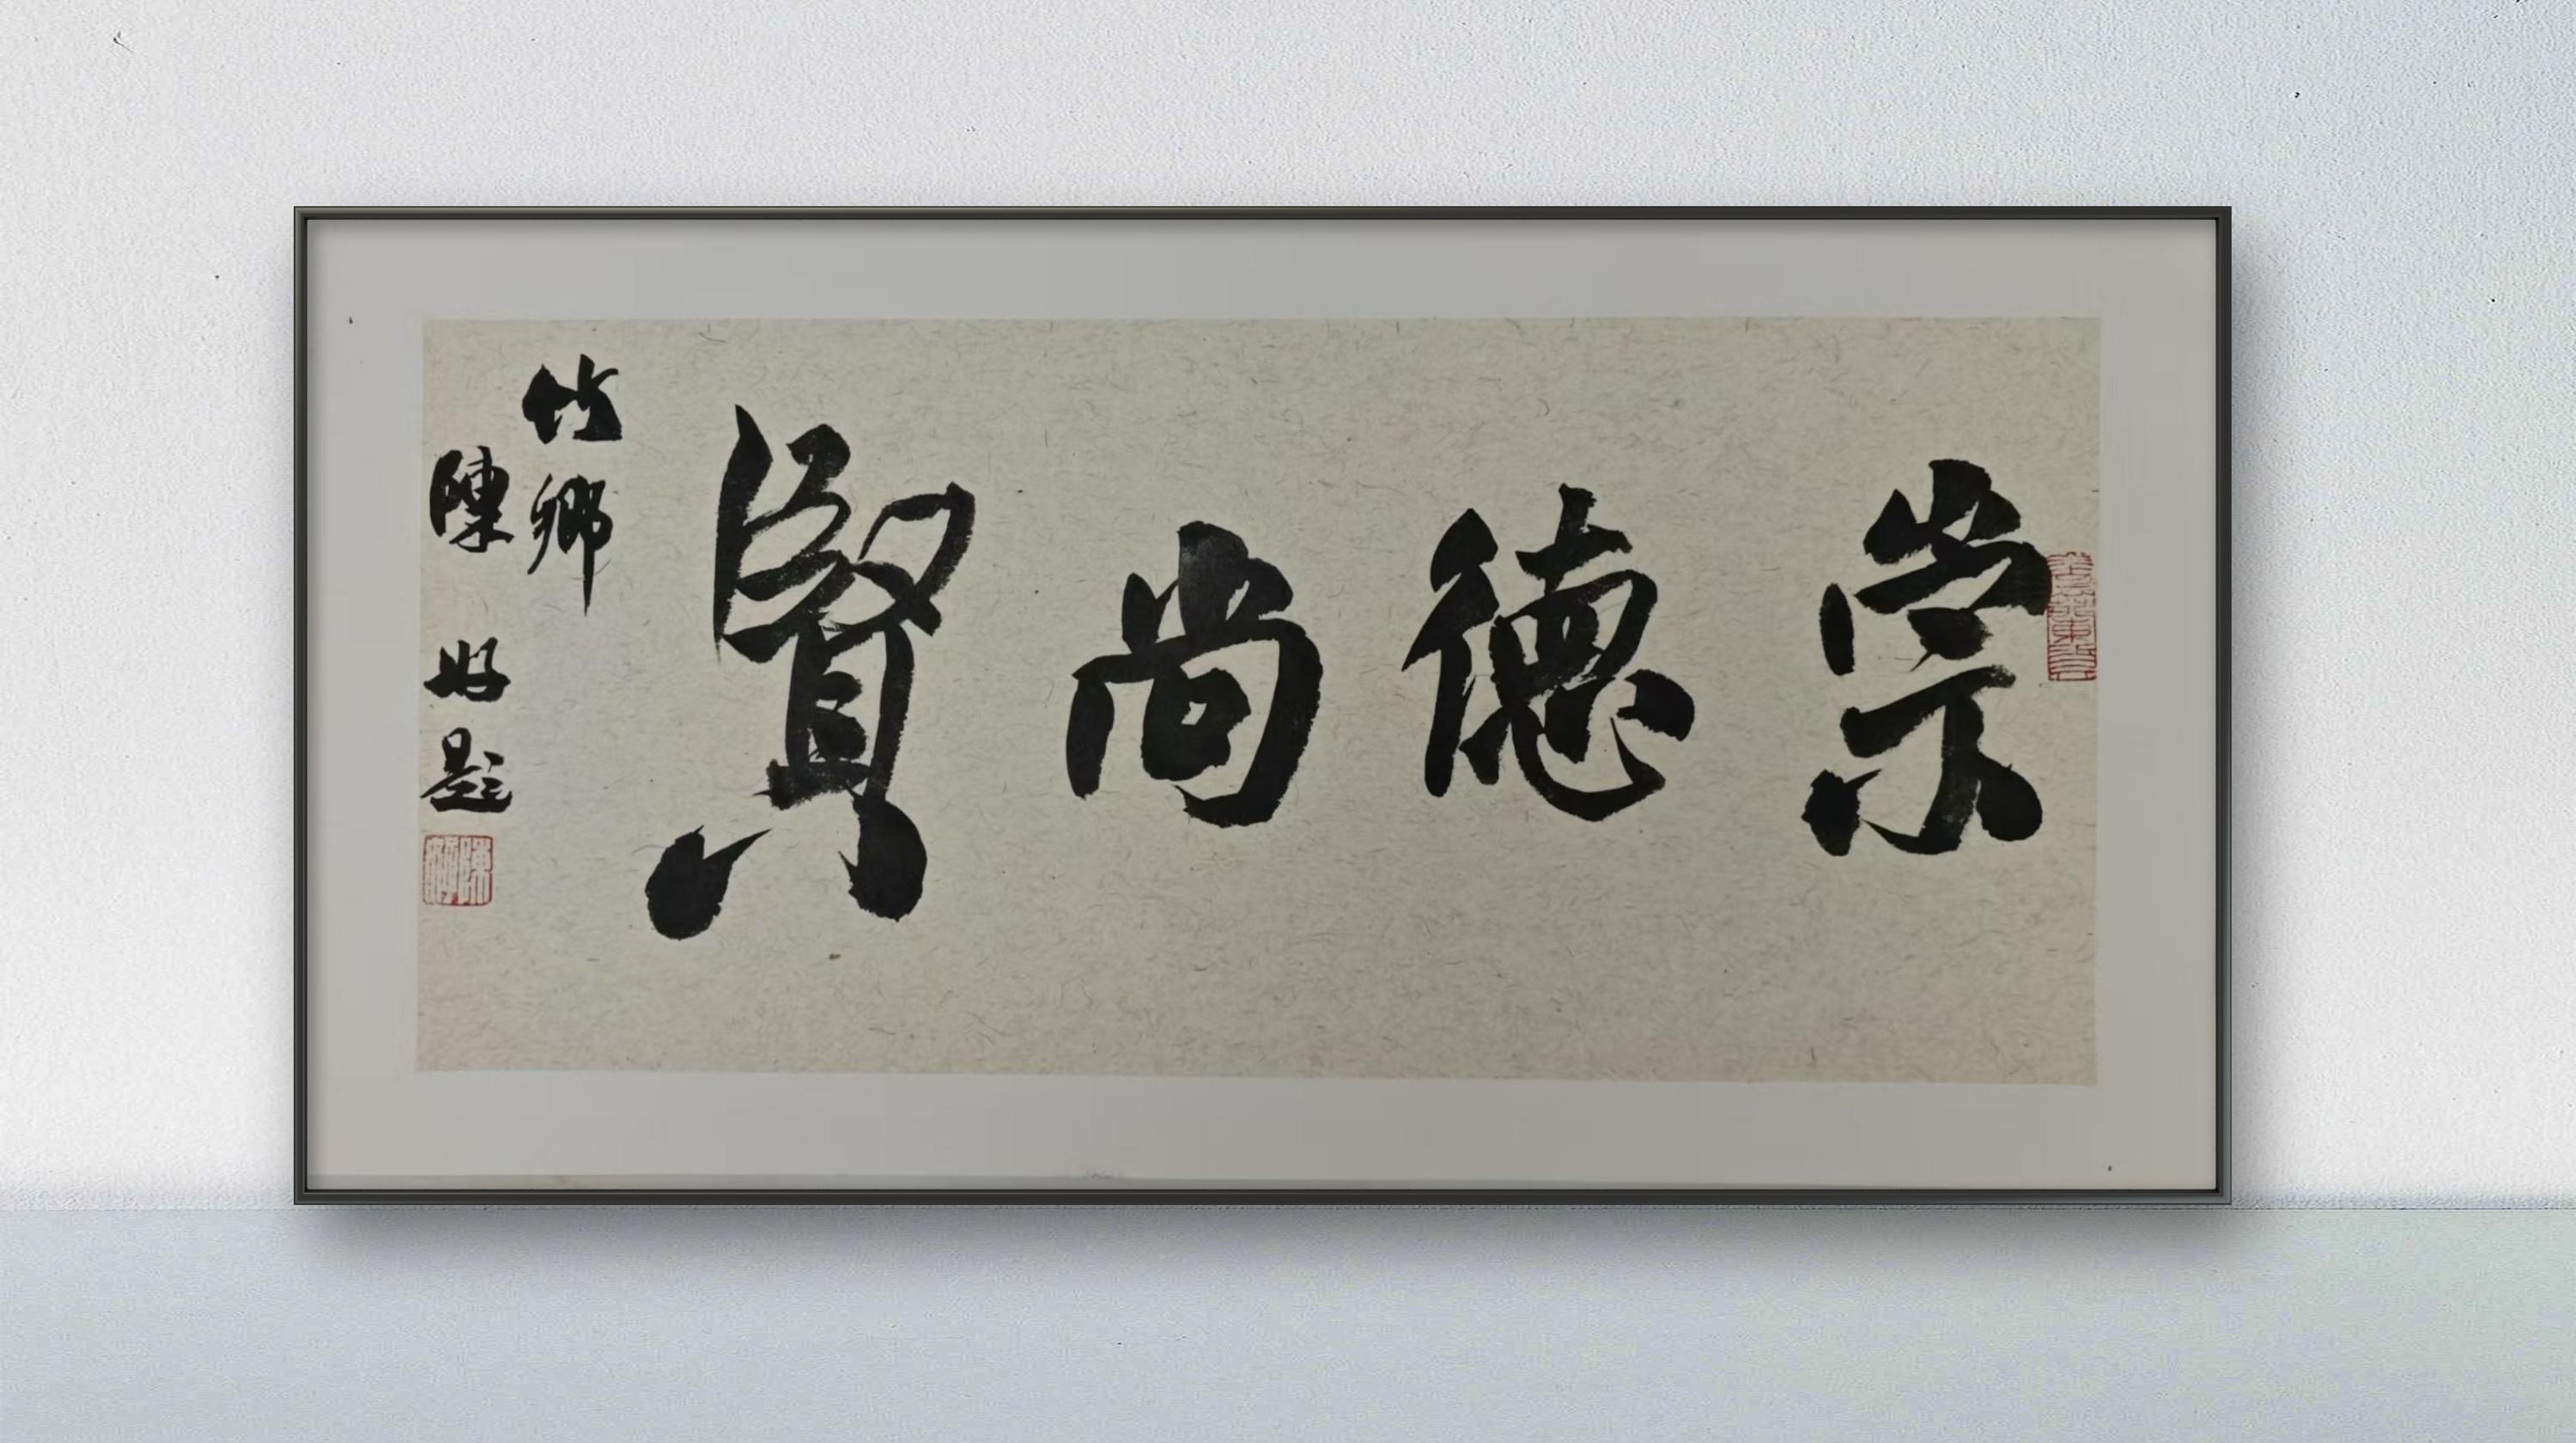 崇德尚賢
竹鄉
陳好題